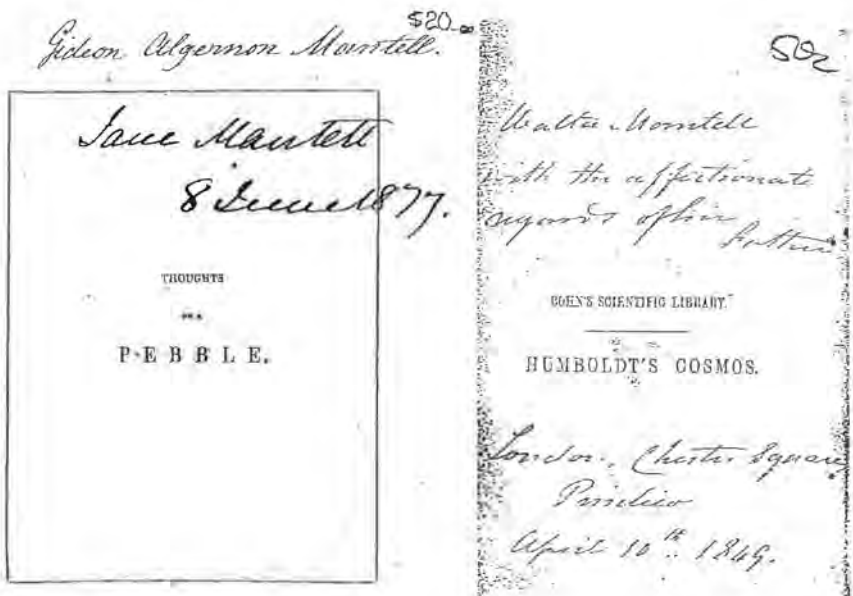 $20
Gideon Algernon Mantell.
Jane Mantell
8 June 1877.
THOUGHTS
ON A
PEBBLE.
502
Walter Mantell
with the affectionate
regards of his
Father
BOHN'S SCIENTIFIC LIBRARY.
HUMBOLDT'S COSMOS.
London, Chester Square
Pimlico
April 10th. 1849.